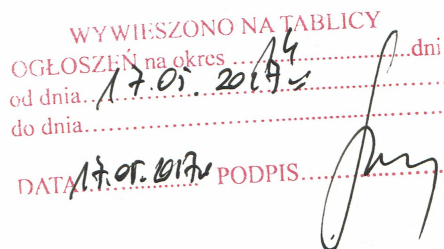 WYWIESZONO NA TABLICY
OGŁOSZEŃ na okres ....14....................dni
od dnia...17.05. 2017r............................
do dnia.................................................
DATA 17.05.2017r PODPIS....................